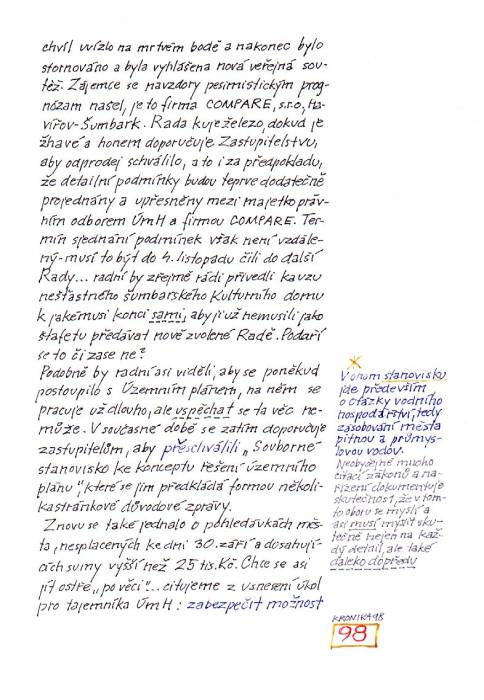 chvíl uvízlo na mrtvém bodě a nakonec bylo
stornováno a byla vyhlášena nová veřejná sou-
těž. Zájemce se navzdory pesimistickým prog-
nózám našel, je to firma COMPARE, s.r.o., Ha-
vířov-Šumbark. Rada kuje železo, dokud je
žhavé a honem doporučuje Zastupitelstvu,
aby odprodej schválilo, a to i za předpokladu,
že detailní podmínky budou teprve dodatečně
projednány a upřesněny mezi majetkopráv-
ním odborem ÚmH a firmou COMPARE. Ter-
mín sjednání podmínek však není vzdále-
ný - musí to být do 4. listopadu čili do další
Rady... radní by zřejmě rádi přivedli kauzu
nešťastného šumbarského Kulturního domu
k jakémusi konci sami, aby ji už nemusili jako
štafetu předávat nově zvolené Radě. Podaří
se to či zase ne?
Podobně by radní asi viděli, aby se poněkud
postoupilo s Územním plánem, na něm se
pracuje už dlouho, ale uspěchat se ta věc ne-
může. V současné době se zatím doporučuje
zastupitelům, aby přeschválili „Souborné
stanovisko ke konceptu řešení územního
plánu", které se jim předkládá formou několi-
kastránkové důvodové zprávy.
Znovu se také jednalo o pohledávkách měs-
ta, nesplacených ke dni 30. září a dosahují-
cích sumy vyšší než 25 tis. Kč. Chce se asi
jít ostře „po věci"... citujeme z usnesení úkol
pro tajemníka ÚmH: zabezpečit možnost
V onom stanovisku
jde především
o otázky vodního
hospodářství, tedy
zásobování města
pitnou a průmys-
lovou vodou.
Neobyčejně mnoho
citací zákonů a na-
řízení dokumentuje
skutečnost, že v tom-
to oboru se myslí a
asi musí myslit sku-
tečně nejen na kaž-
dý detail, ale také
daleko dopředu
KRONIKA 98
98